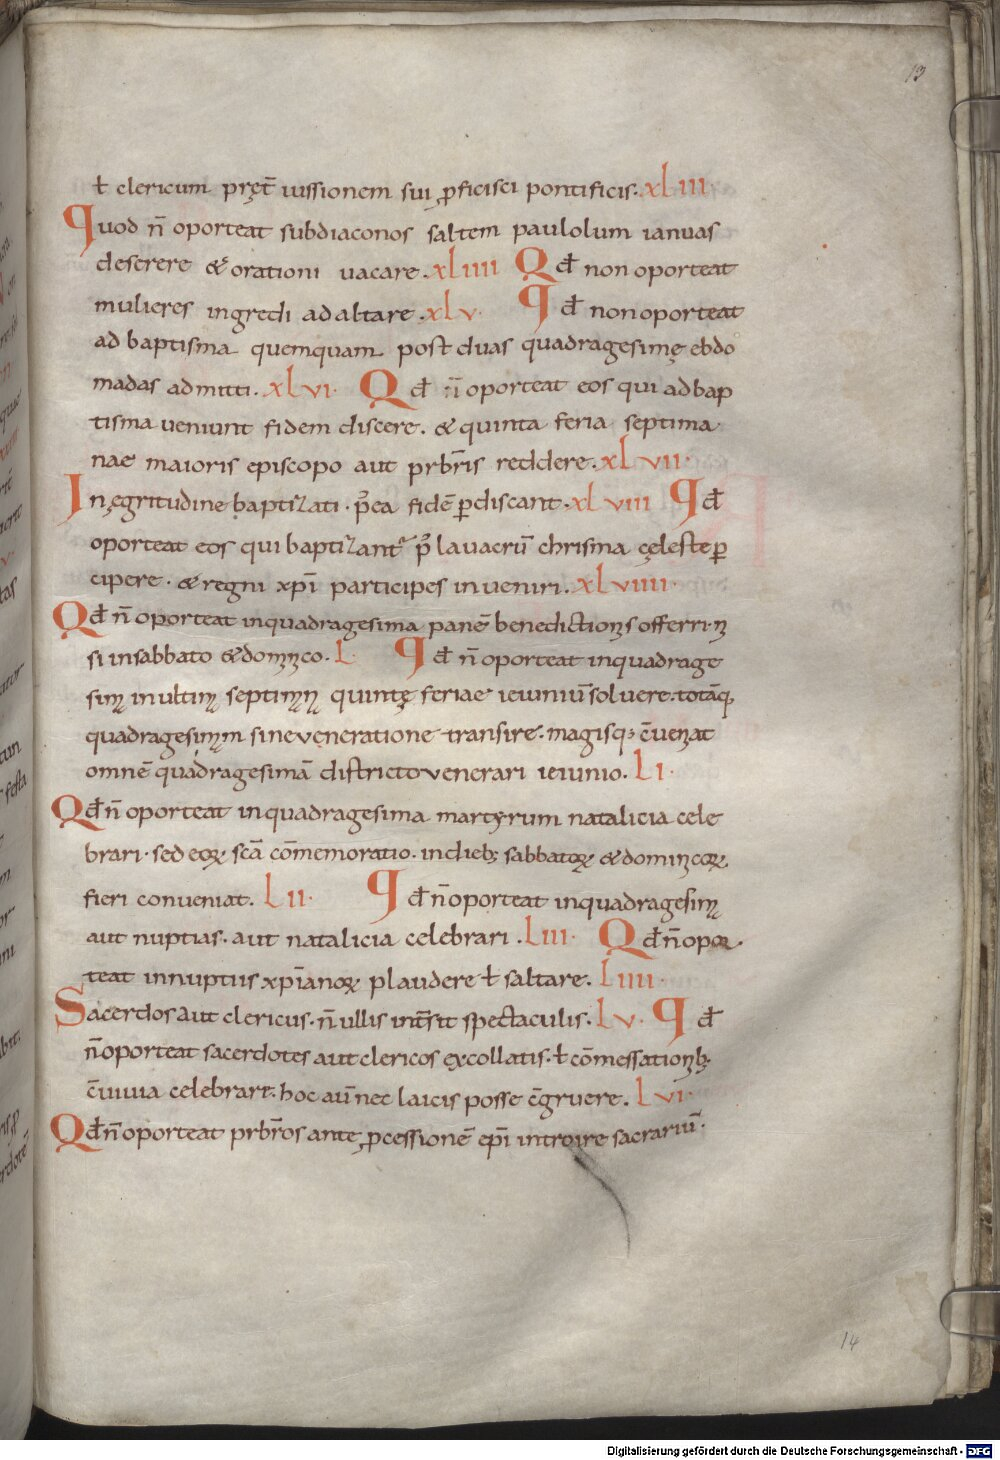 13
ł clericum pręt̄ iussionem sui ꝓficisci pontificis. xLIII.
Quod n̄ oporteat subdiaconos saltem paulolum ianuas
deserere & orationi uacare. xLIIII Qđ non oporteat
mulieres ingredi ad altare. xLv. Qđ non oporteat
ad baptisma quemquam post duas quadragesimę ebdo
madas admitti. xLvI. Qđ n̄ oporteat eos qui ad bap
tisma ueniunt fidem discere. & quinta feria septima
nae maioris episcopo aut prb̄ris reddere. xLvII.
In ęgritudine baptizati. p̄ea fidē ꝑdiscant. xLvIII Qđ
oporteat eos qui baptizant᷑ p̄ lauacrū chrisma cęleste ꝑ
cipere. & regni xp̄i participes inueniri. xLvIIII.
Qđ n̄ oporteat in quadragesima panē benedictionis offerri. ni
si in sabbato & dominico. L. Qđ n̄ oporteat in quadrage
sima in ultima septimana quintę feriae ieiuniū soluere. totāq;
quadragesimam sine ueneratione transire. magisq; c̄ueniat
omnē quadragesimā districto uenerari ieiunio. LI.
Qđ n̄ oporteat in quadragesima martyrum natalicia cele
brari. sed eoꝝ scā cōmemoratio. in dieb; sabbatoꝝ & dominicoꝝ
fieri conueniat. LII. Qđ n̄ oporteat in quadragesima
aut nuptias. aut natalicia celebrari. LIII. Qđ n̄ opor
teat in nuptiis xp̄ianoꝝ plaudere ł saltare. LIIII.
Sacerdos aut clericus. n̄ ullis int̄sit spectaculis. Lv. Qđ
n̄ oporteat sacerdotes aut clericos ex collatis. ł cōmessationib;
c̄uiuia celebrare. hoc aū nec laicis posse c̄gruere. LvI.
Qđ n̄ oporteat prb̄ros ante ꝓcessionē ep̄i introire sacrariū.
14
Digitalisierung gefördert durch die Deutsche Forschungsgemeinschaft - DFG